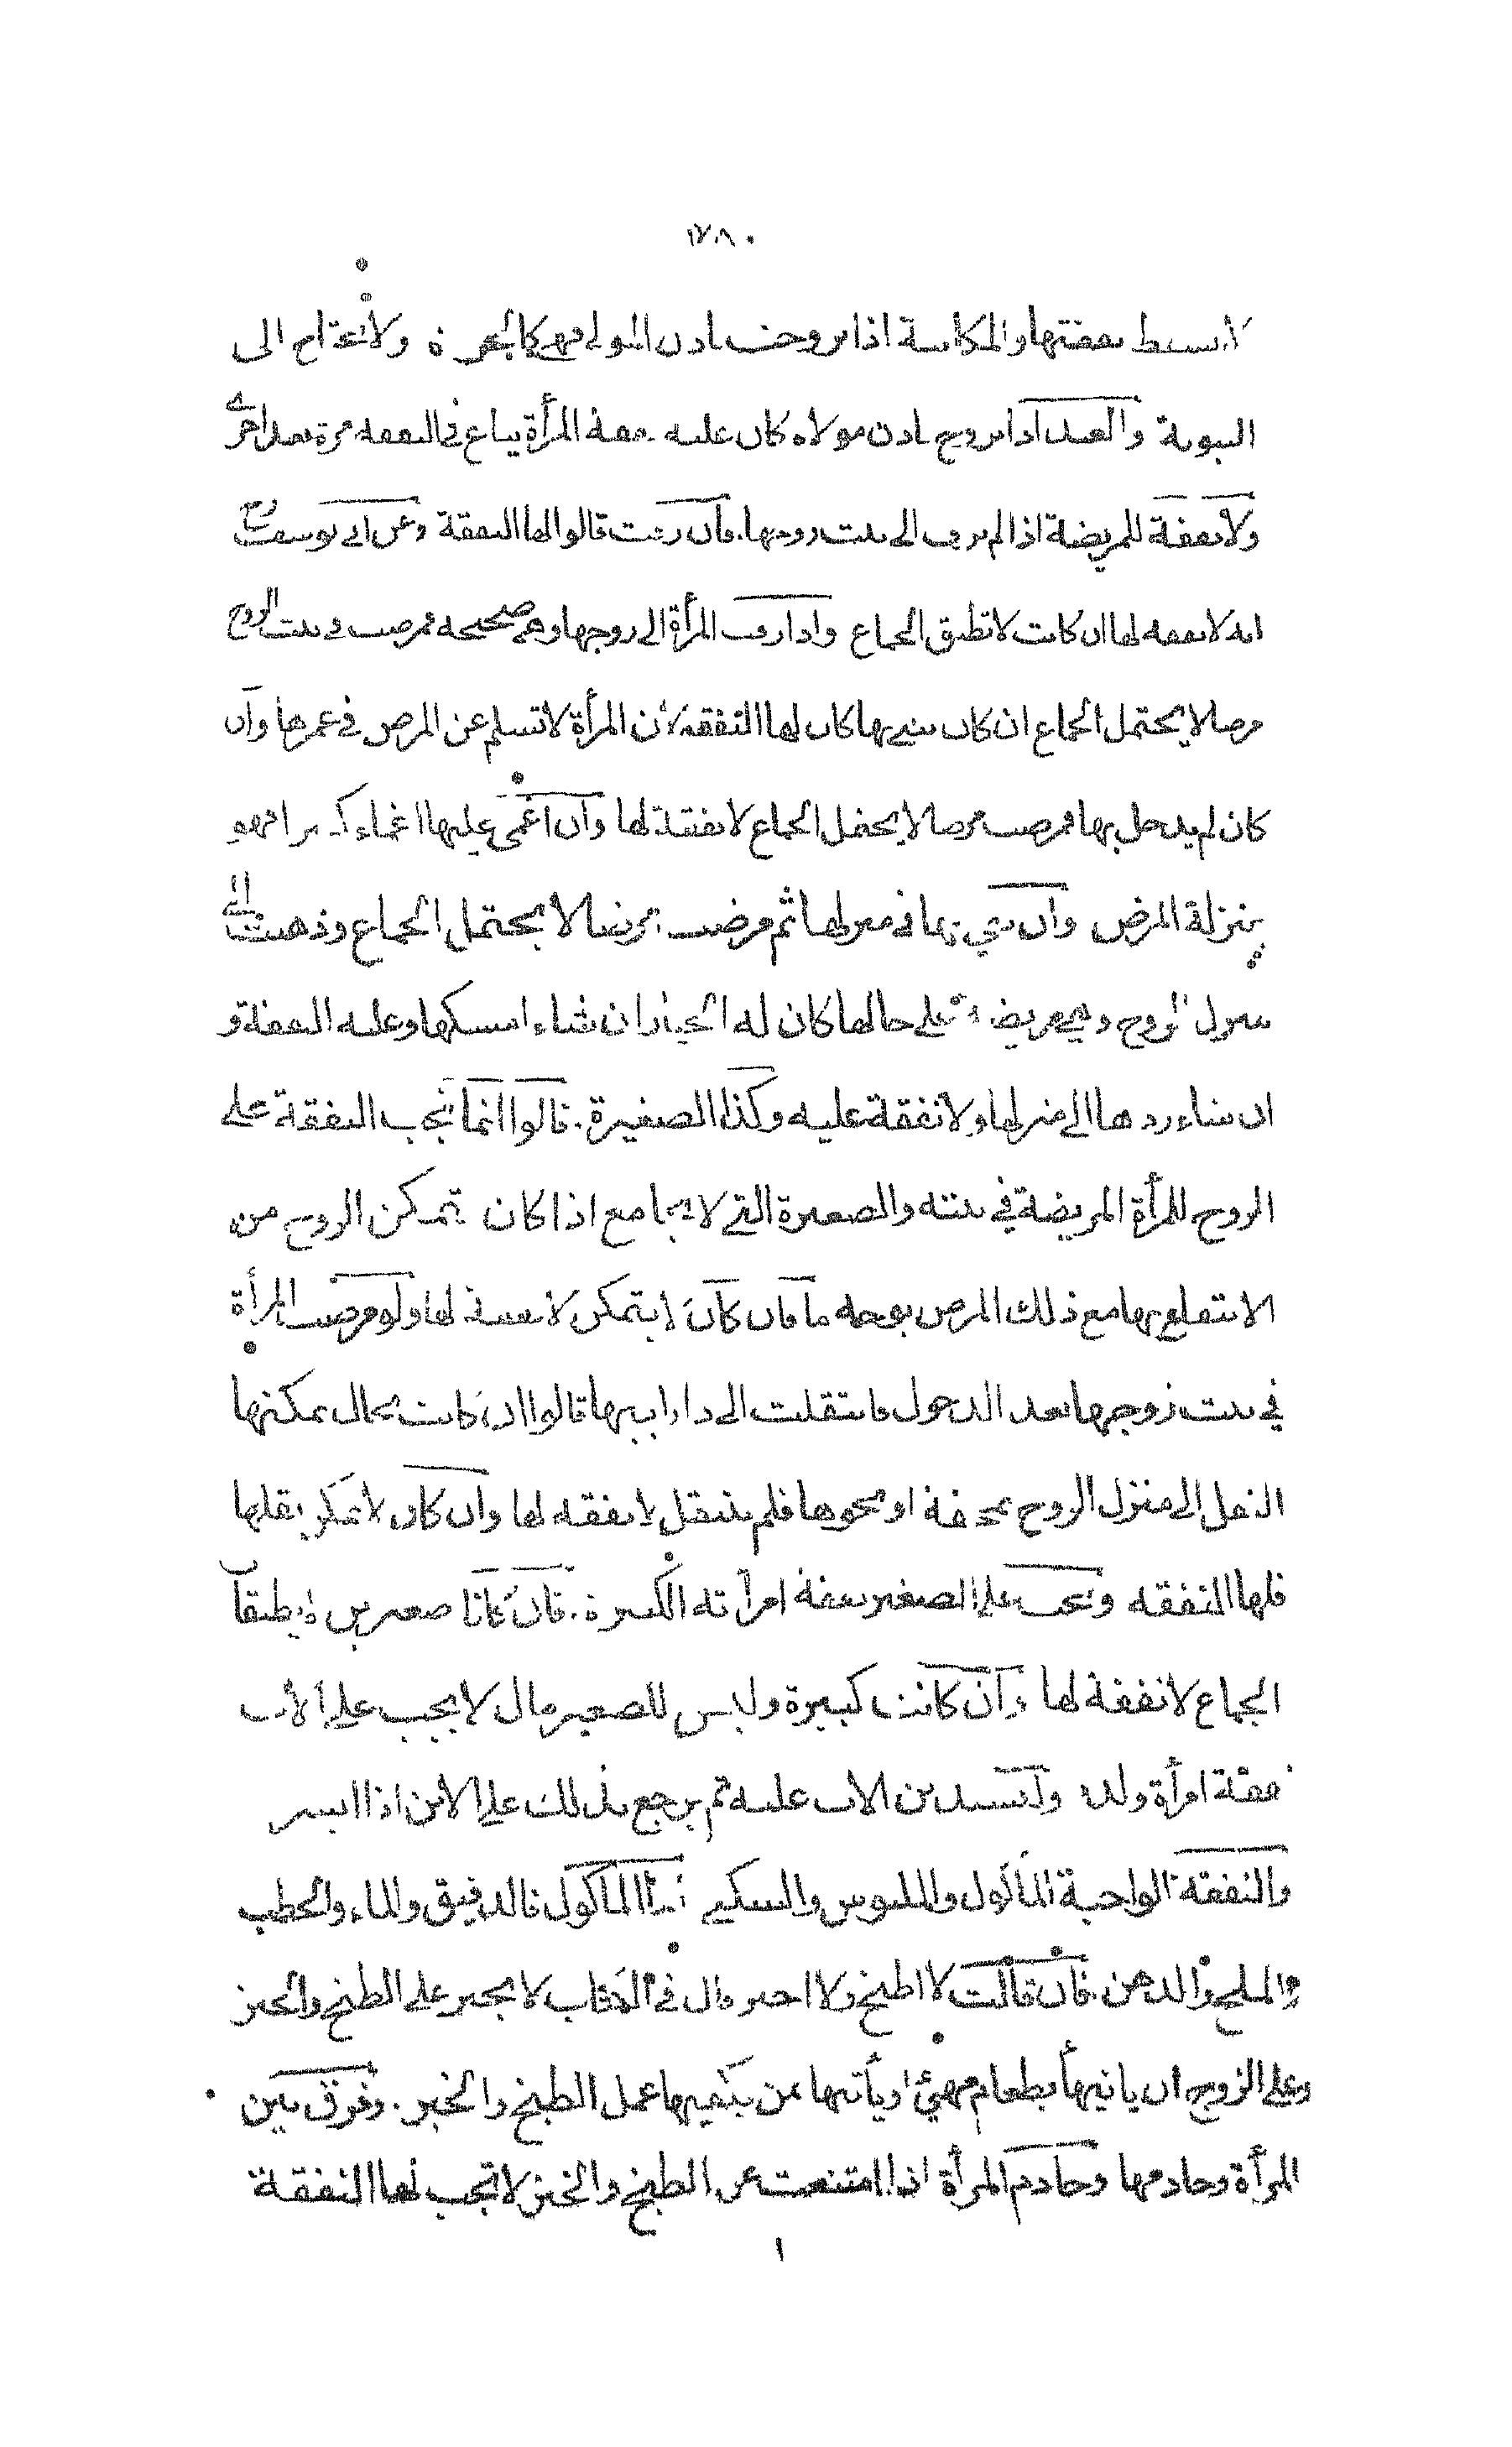 ١٧٨٠
لا تسقط نفقتها والمكاتبة اذا تزوجت باذن المولى فهي كالحرة ولا تحتاج الى
التبوئة والعبد اذا تزوج باذن مولاه كان عليه نفقة المرأة يباع في النفقه مرة بعد اخرى
ولا نفقة للمريضة اذا لم تزف الى بيت زوجها. فان زفت قالوا لها النفقة وعن ابي يوسف رح
انه لا نفقه لها ان كانت لا تطيق الجماع واذا زفت المرأة الى زوجها وهي صحيحه فمرضت في بيت الزوج
مرضا لا يحتمل الجماع ان كان بنى بها كان لها النفقه لأن المرأة لا تسلم عن المرض في عمرها وان
كان لم يدخل بها فمرضت مرضا لا يحتمل الجماع لا نفقة لها وان اغمى عليها اغماء كثيرا فهو
بمنزلة المرض وان بنى بها في منزلها ثم مرضت مرضا لا يحتمل الجماع وذهبت الى
منزل الزوج وهي مريضة على حالها كان له الخيار ان شاء امسكها وعليه النفقة و
ان شاء ردها الى منزلها ولا نفقة عليه وكذا الصغيرة. قالوا انما تجب النفقة على
الزوج للمرأة المريضة في بيته والصغيرة التي لا يجامع اذا كان يتمكن الزوج من
الانتفاع بها مع ذلك المرض بوجه ما فان كان لا يتمكن لا نفقة لها ولو مرضت المرأة
في بيت زوجها بعد الدخول فانتقلت الى دار ابيها قالوا ان كانت بحال يمكنها
النقل الى منزل الزوج بمحفة او نحوها فلم ينتقل لا نفقه لها وان كان لا يمكن نقلها
فلها النفقه وتجب على الصغير نفقة امرأته الكبيرة. فان كانا صغيرين لا يطيقان
الجماع لا نفقة لها وان كانت كبيرة وليس للصغير مال لا يجب على الأب
نفقة امرأة ولده ويستدين الاب عليه ثم يرجع بذلك على الابن اذا ايسر
والنفقة الواجبة المأكول والملبوس والسكنى اما المأكول فالدقيق والماء والحطب
والملح والدهن. فان قالت لا اطبخ ولا اخبز قال في الكتاب لا يجبر على الطبخ والخبز
وعلى الزوج ان ياتيها بطعام مهيئ او يأتيها بمن يكفيها عمل الطبخ والخبز. وفرق بين
المرأة وخادمها وخادم المرأة اذا امتنعت عن الطبخ والخبز لا تجب لها النفقة
١